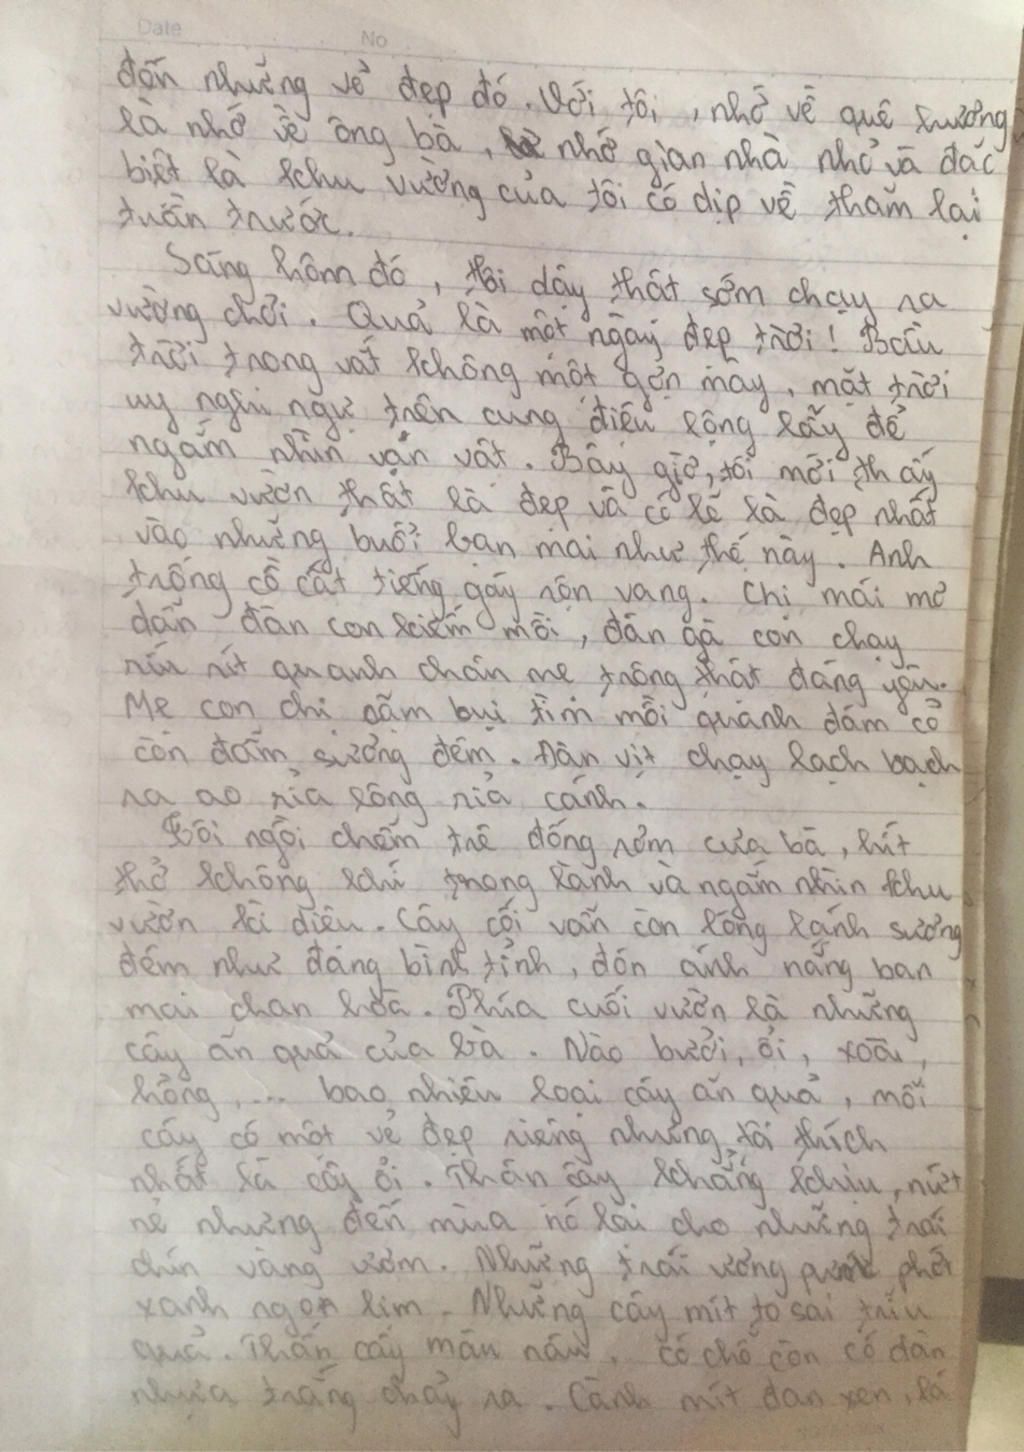 Date No
đến những vẻ đẹp đó. Với tôi, nhớ về quê hương
là nhớ về ông bà, nhớ gian nhà nhỏ và đặc
biệt là khu vường của tôi có dịp về thăm lại
tuần trước.
Sáng hôm đó, tôi dậy thật sớm chạy ra
vường chơi. Quả là một ngày đẹp trời! Bầu
trời trong vắt không một gợn mây, mặt trời
uy nghi ngự trên cung điện lộng lẫy để
ngắm nhìn vạn vật. Bây giờ, tôi mới thấy
khu vườn thật là đẹp và có lẽ là đẹp nhất
vào những buổi ban mai như thế này. Anh
trống cồ cất tiếng gáy rộn vang. Chị mái mơ
dẫn đàn con kiếm mồi, đàn gà con chạy
ríu rít quanh chân mẹ trông thật đáng yêu.
Mẹ con chị cắm bụi tìm mồi quanh đám cỏ
còn đẫm sương đêm. Đàn vịt chạy lạch bạch
ra ao rỉa lông rỉa cánh.
Tôi ngồi chễm trệ đống rơm của bà, hít
thở không khí trong lành và ngắm nhìn khu
vườn kì diệu. Cây cối vẫn còn lóng lánh sương
đêm như đang bình tĩnh, đón ánh nắng ban
mai chan hoà. Phía cuối vườn là những
cây ăn quả của bà. Nào bưởi, ổi, xoài,
hồng,... bao nhiêu loại cây ăn quả, mỗi
cây có một vẻ đẹp riêng nhưng tôi thích
nhất là cây ổi. Thân cây khẳng khiu, nứt
nẻ nhưng đến mùa nó lại cho những trái
chín vàng ươm. Những trái ương phớt
xanh ngon lim. Những cây mít to sai trĩu
quả. Thân cây màu nâu, có chỗ còn có đàn
nhựa trắng chảy ra. Cành mít đan xen, lá